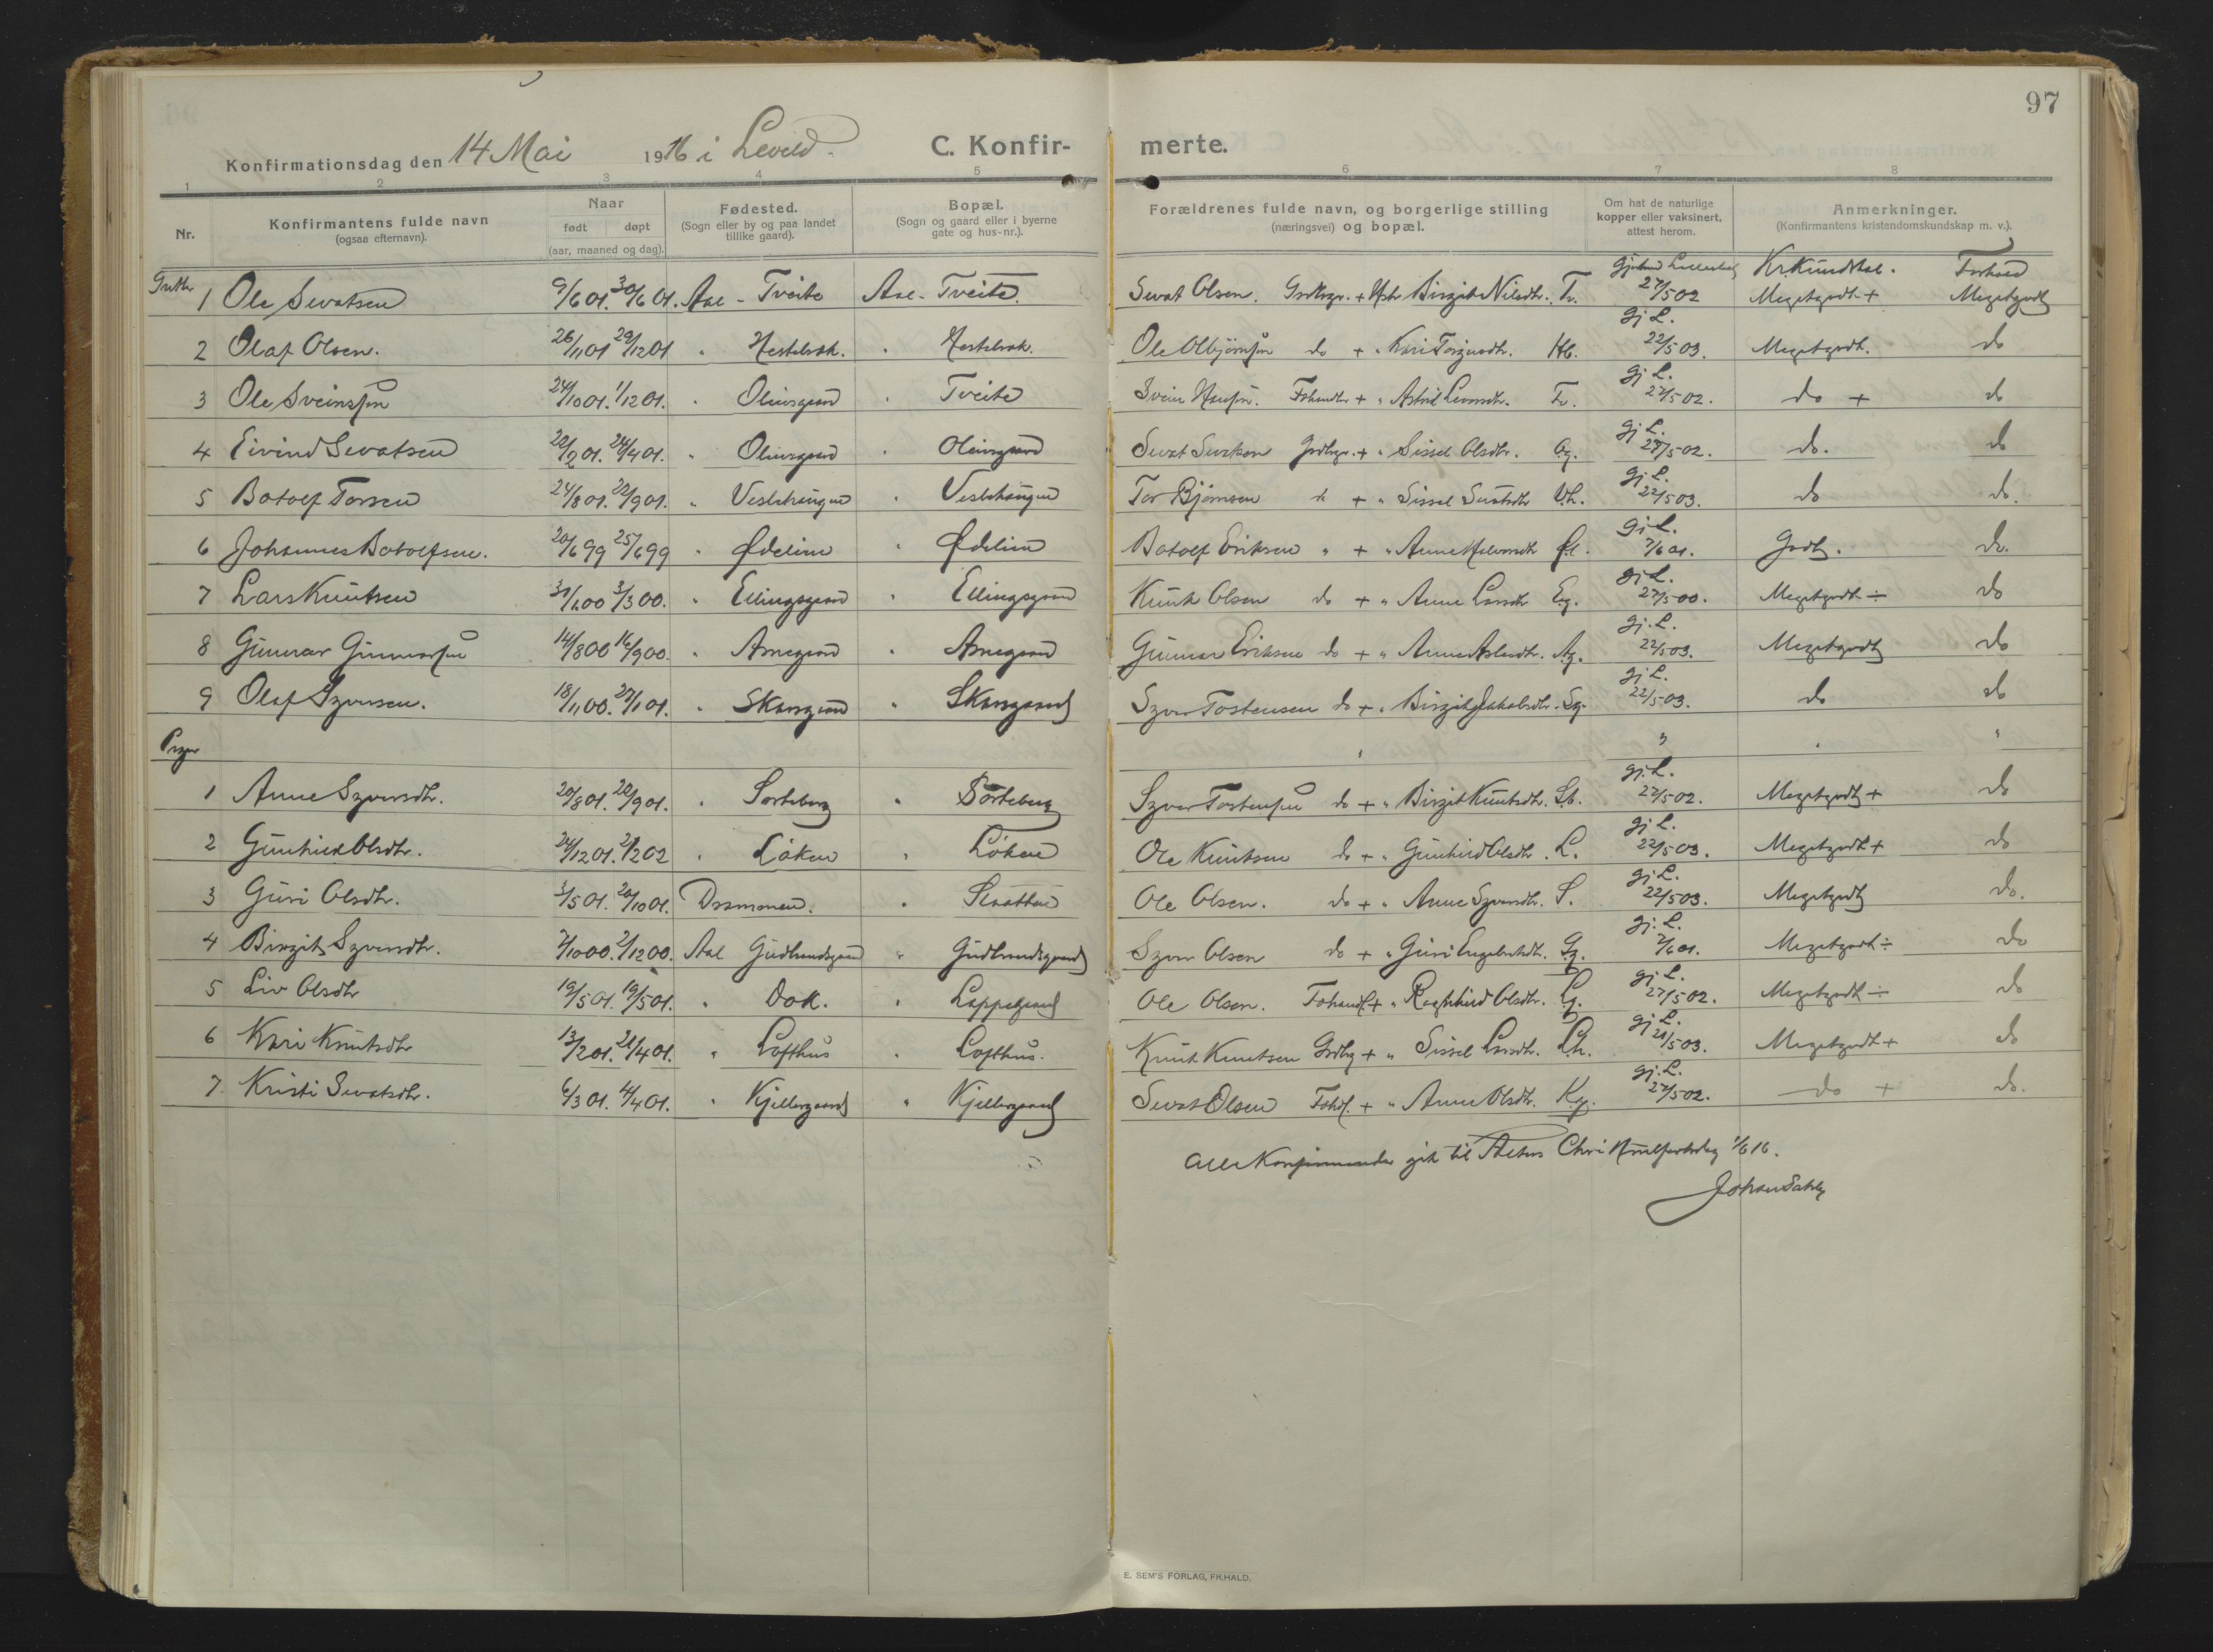 97
Konfirmationsdag den 14 Mai 1916 i Leveld. C. Konfir- merte.
1 2 3 4 5 6 7 8
Nr. Konfirmantens fulde navn (ogsaa efternavn). Naar født døpt (aar, maaned og dag). Fødested. (Sogn eller by og paa landet tillike gaard). Bopæl. (Sogn og gaard eller i byerne gate og hus-nr.). Forældrenes fulde navn, og borgerlige stilling (næringsvei) og bopæl. Om hat de naturlige kopper eller vaksinert, attest herom. Anmerkninger. (Konfirmantens kristendomskundskap m. v.).
Kr.kundskab. Forhold
1 Ole Sevatsen 9/6 01. 30/6 01. Aal - Tveito Aal - Tveito. Sevat Olsen. Grdbrgr. + Hstr Birgit Nilsdtr. Tv. 27/5 02 Megetgodt + Megetgodt
2 Olaf Olsen. 26/11 01 29/12 01 " Hestebrek. " Hestebrek. Ole Olbjørnsen do + " Kari Torgersdtr. Hb. gj. L. 22/5 03. Megetgodt. do
3 Ole Sveinssøn 24/10 01. 1/12 01. " Oleivsgaard " Tveito Svein Fohandler + " Astrid Tv. gj. L. 27/5 02. do + do
4 Eivind Sevatsen 22/2 01. 24/4 01. " Oleivsgaard " Oleivsgaard Sevat Sevatsen Grdbrgr. + " Sissel Olsdtr. Og. gj. L. 27/5 02. do. do
5 Botolf Torsen 24/8 01. 22/9 01. " Veslehaugen " Veslehaugen Tor Bjørnsen do + " Sissel Sevatsdtr Vh. gj. L. 22/5 03. do do.
6 Johannes Botolfsen. 20/6 99 25/6 99 " Ødelien " Ødelien Botolf Eriksen " + " Anne Halvorsdtr Øl. gj. L. 7/6 01. Godt. do.
7 Lars Knutsen 31/1 00 3/3 00. " Ellingsgaard " Ellingsgaard Knut Olsen do + " Anne Larsdtr Eg. gj. L. 27/5 00. Megetgodt ÷ do
8 Gunnar Gunnarsøn 14/8 00 16/9 00. " Arnegaard " Arnegaard Gunnar Eriksen do + " Anne Aslesdtr. Ag. gj. L. 22/5 03. Megetgodt do
9 Olaf Syversen. 18/11 00. 27/1 01. " Skarsgaard " Skarsgaard Syver Tostensen do + " Birgit Jakobsdtr. Sg. gj. L. 22/5 03. do do
Piger " " " "
1 Anne Syversdtr. 20/8 01. 22/9 01. " Sorteberg " Sorteberg Syver Tostensen do + " Birgit Knutsdtr. Sb. gj. L. 22/5 02. Megetgodt + do
2 Gunhild Olsdtr. 24/12 01. 2/2 02 " Løken " Løken Ole Knutsen do + " Gunhild Olsdtr. L. gj. L. 22/5 03. Megetgodt + do
3 Guri Olsdtr. 3/5 01. 20/10 01. Drammen. " Slaatten Ole Olsen. do + " Anne Syversdtr. S. gj. L. 22/5 03. Megetgodt do.
4 Birgit Syversdtr. 7/10 00. 2/12 00. Aal Gudbrandsgaard " Gudbrandsgaard Syver Olsen do + " Guri Engebretsdtr. Gg. gj. L. 7/6 01. Megetgodt ÷ do
5 Liv Olsdtr 19/5 01. 19/5 01. " Dok. " Lappegaard Ole Olsen. Fohandl. + " Ragnhild Olsdtr. Lg. gj. L. 27/5 02. Megetgodt ÷ do
6 Kari Knutsdtr 13/2 01. 21/4 01. " Lofthus " Lofthus. Knut Knutsen Grdbrg + " Sissel Larsdtr. Lh. gj. L. 21/5 03. Megetgodt + do
7. Kristi Sevatsdtr. 6/3 01. 4/4 01. " Kjellergaard " Kjellergaard Sevat Olsen Fohdl. + " Anne Olsdtr. Kg. gj. L. 27/5 02. do + do.
Alle Konfirmander gik til Alters Chri Himlfartsdag 1/6 16.
Johan
E. SEM'S FORLAG, FR.HALD.